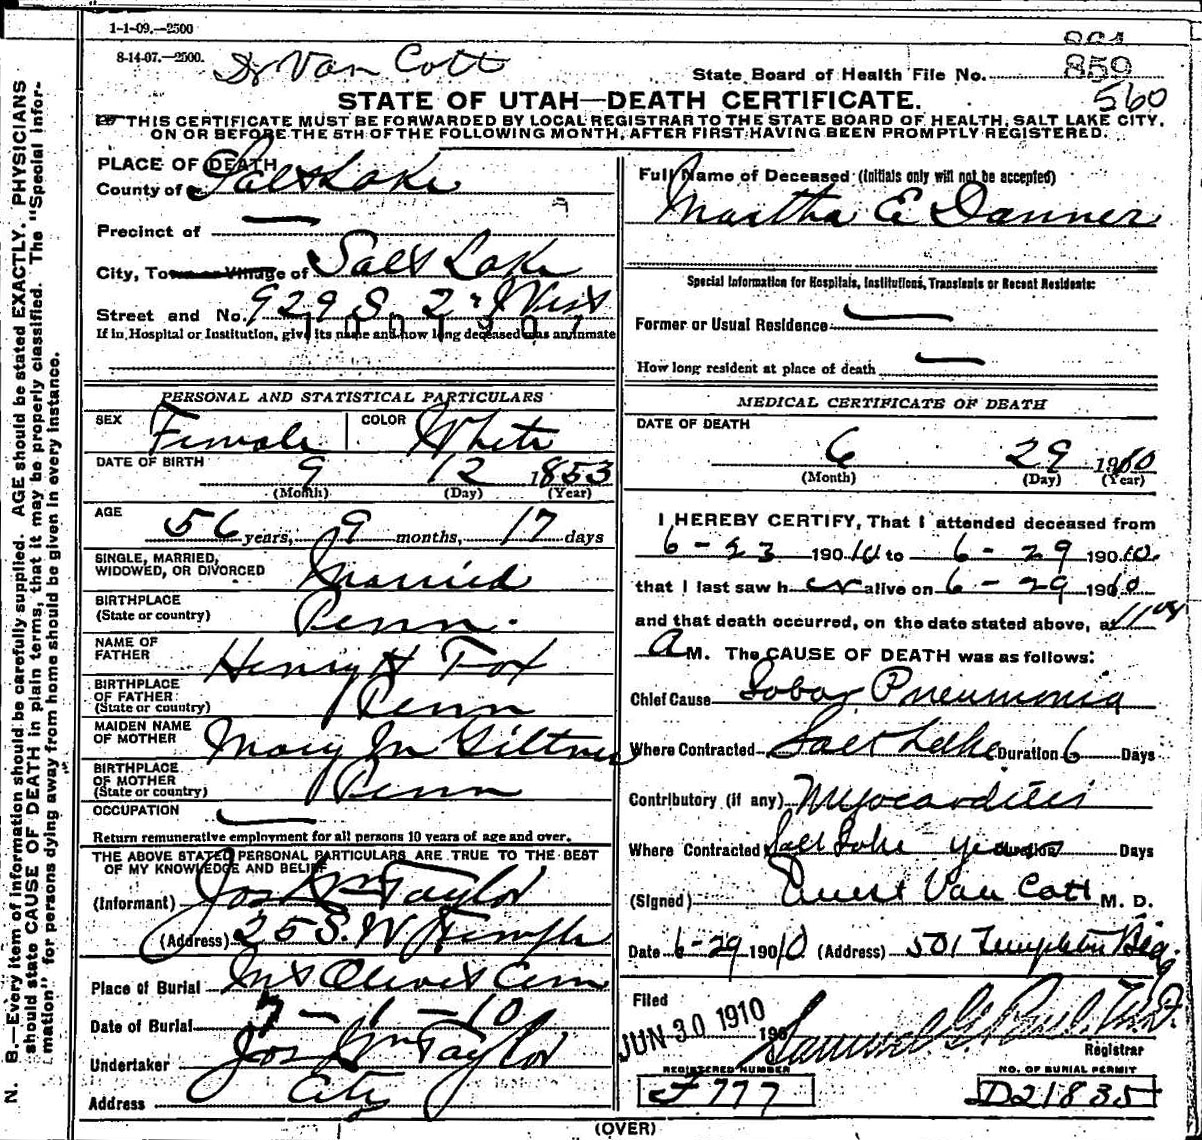 1-1-09.—2500
8-14-07.—2500.
Dr Van Cott
864
State Board of Health File No. 859
560
STATE OF UTAH—DEATH CERTIFICATE.
THIS CERTIFICATE MUST BE FORWARDED BY LOCAL REGISTRAR TO THE STATE BOARD OF HEALTH, SALT LAKE CITY,
ON OR BEFORE THE 5TH OF THE FOLLOWING MONTH, AFTER FIRST HAVING BEEN PROMPTLY REGISTERED.
PLACE OF DEATH
County of Salt Lake
Precinct of —
City, Town or Village of Salt Lake
Street and No. 929 S 2nd West
If in Hospital or Institution, give its name and how long deceased was an inmate
Full Name of Deceased (Initials only will not be accepted)
Martha E Danner
Special Information for Hospitals, Institutions, Transients or Recent Residents:
Former or Usual Residence —
How long resident at place of death —
PERSONAL AND STATISTICAL PARTICULARS
SEX Female COLOR White
DATE OF BIRTH 9 12 1853
(Month) (Day) (Year)
AGE 56 years, 9 months, 17 days
SINGLE, MARRIED,
WIDOWED, OR DIVORCED Married
BIRTHPLACE
(State or country) Penn.
NAME OF
FATHER Henry H Fox
BIRTHPLACE
OF FATHER
(State or country) Penn
MAIDEN NAME
OF MOTHER Mary M Giltner
BIRTHPLACE
OF MOTHER
(State or country) Penn
OCCUPATION —
Return remunerative employment for all persons 10 years of age and over.
THE ABOVE STATED PERSONAL PARTICULARS ARE TRUE TO THE BEST
OF MY KNOWLEDGE AND BELIEF
(Informant) Jos Wm Taylor
(Address) 25 S. W Temple
Place of Burial Mt Olivet Cem
Date of Burial 7-1-10
Undertaker Jos Wm Taylor
Address City
MEDICAL CERTIFICATE OF DEATH
DATE OF DEATH
6 29 1910
(Month) (Day) (Year)
I HEREBY CERTIFY, That I attended deceased from
6-23 1910 to 6-29 1910.
that I last saw her alive on 6-29 1910
and that death occurred, on the date stated above, at 11
A M. The CAUSE OF DEATH was as follows:
Chief Cause Lobar Pneumonia
Where Contracted Salt Lake Duration 6 Days
Contributory (if any) Myocarditis
Where Contracted Salt Lake years Duration Days
(Signed) Ernest Van Cott M. D.
Date 6-29 1910 (Address) 501 Templeton Bldg
Filed
JUN 30 1910 190
Samuel G. Paul
Registrar
REGISTERED NUMBER
F777
NO. OF BURIAL PERMIT
D21835
(OVER)
N. B.—Every item of information should be carefully supplied. AGE should be stated EXACTLY. PHYSICIANS
should state CAUSE OF DEATH in plain terms, that it may be properly classified. The "Special Infor-
mation" for persons dying away from home should be given in every instance.